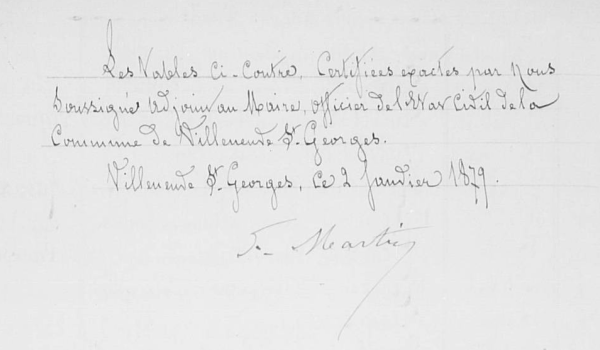 Les Tables ci-contre, Certifiées exactes par Nous
Soussigné Adjoint au Maire, officier de l'Etat Civil de la
Commune de Villeneuve St. Georges.
Villeneuve St. Georges, ce 2 Janvier 1879.
F. Martin